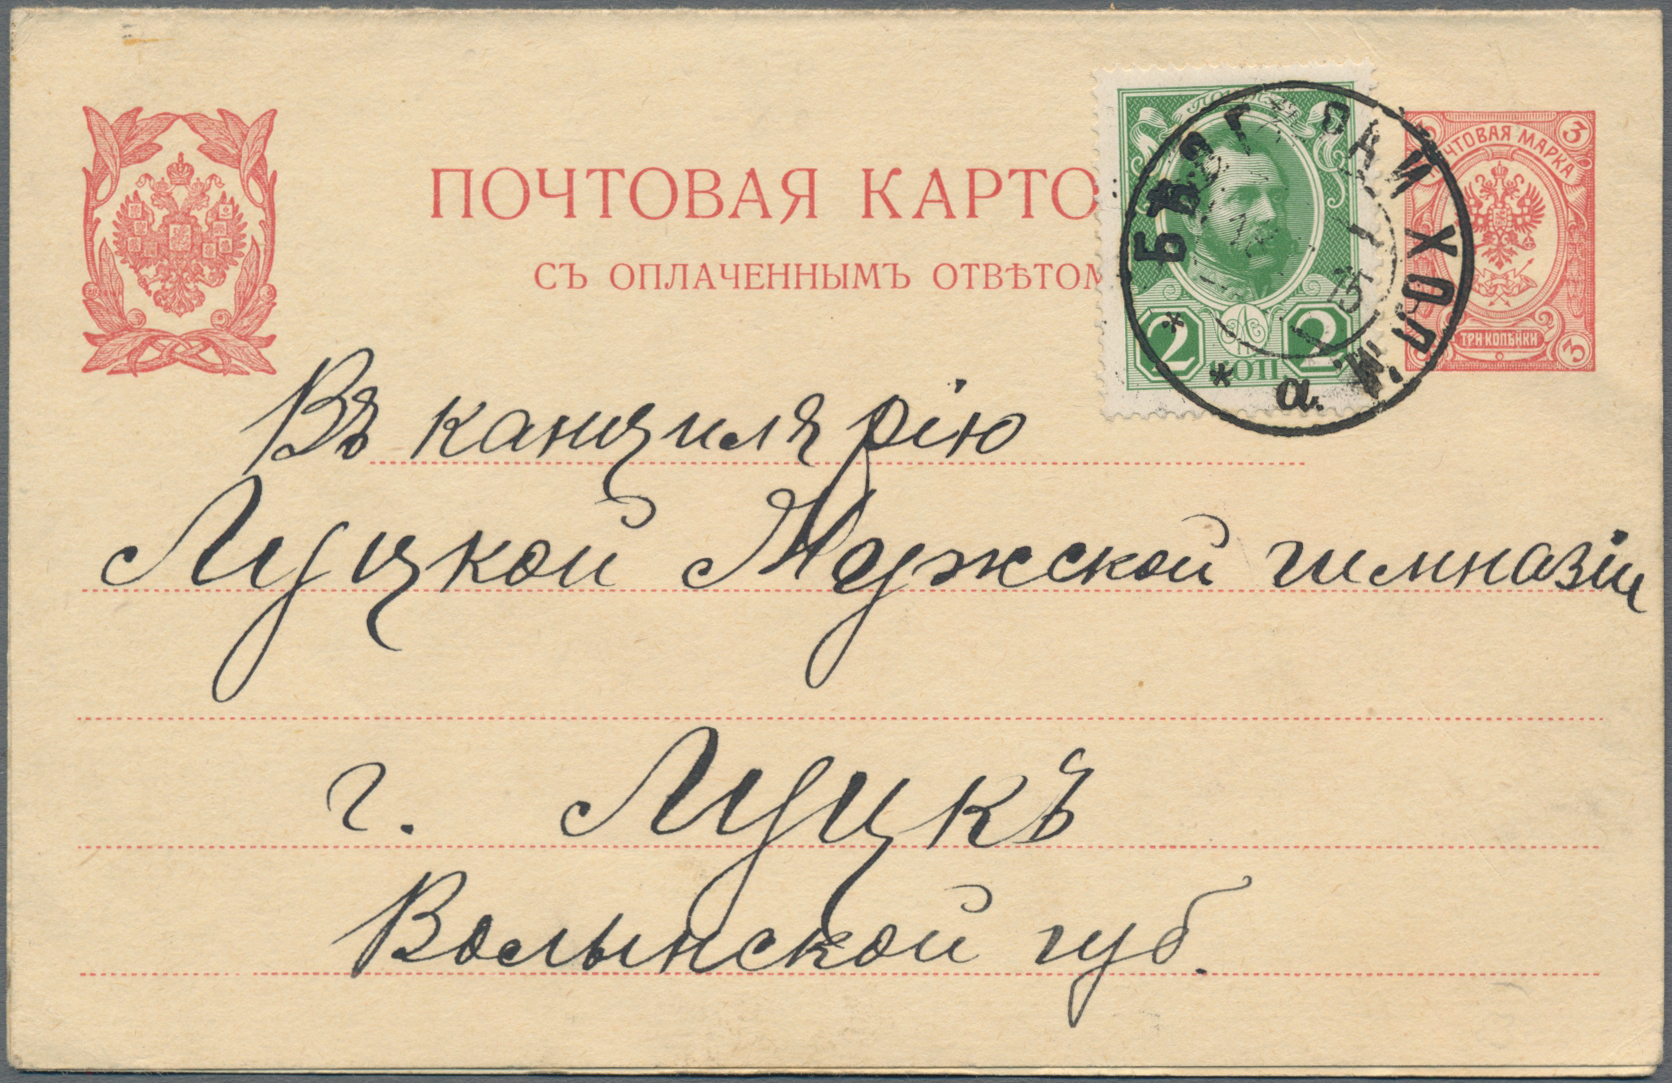 ПОЧТОВАЯ КАРТО
СЪ ОПЛАЧЕННЫМЪ ОТВѢТОМ
2 2
КОП
ЧТОВАЯ МАРКА
3
ТРИ КОПѢЙКИ
3
ХОЛМ.
а.
Въ канцилярію
Луцкой Мужской гимназіи
г. Луцкъ
Волынской губ.